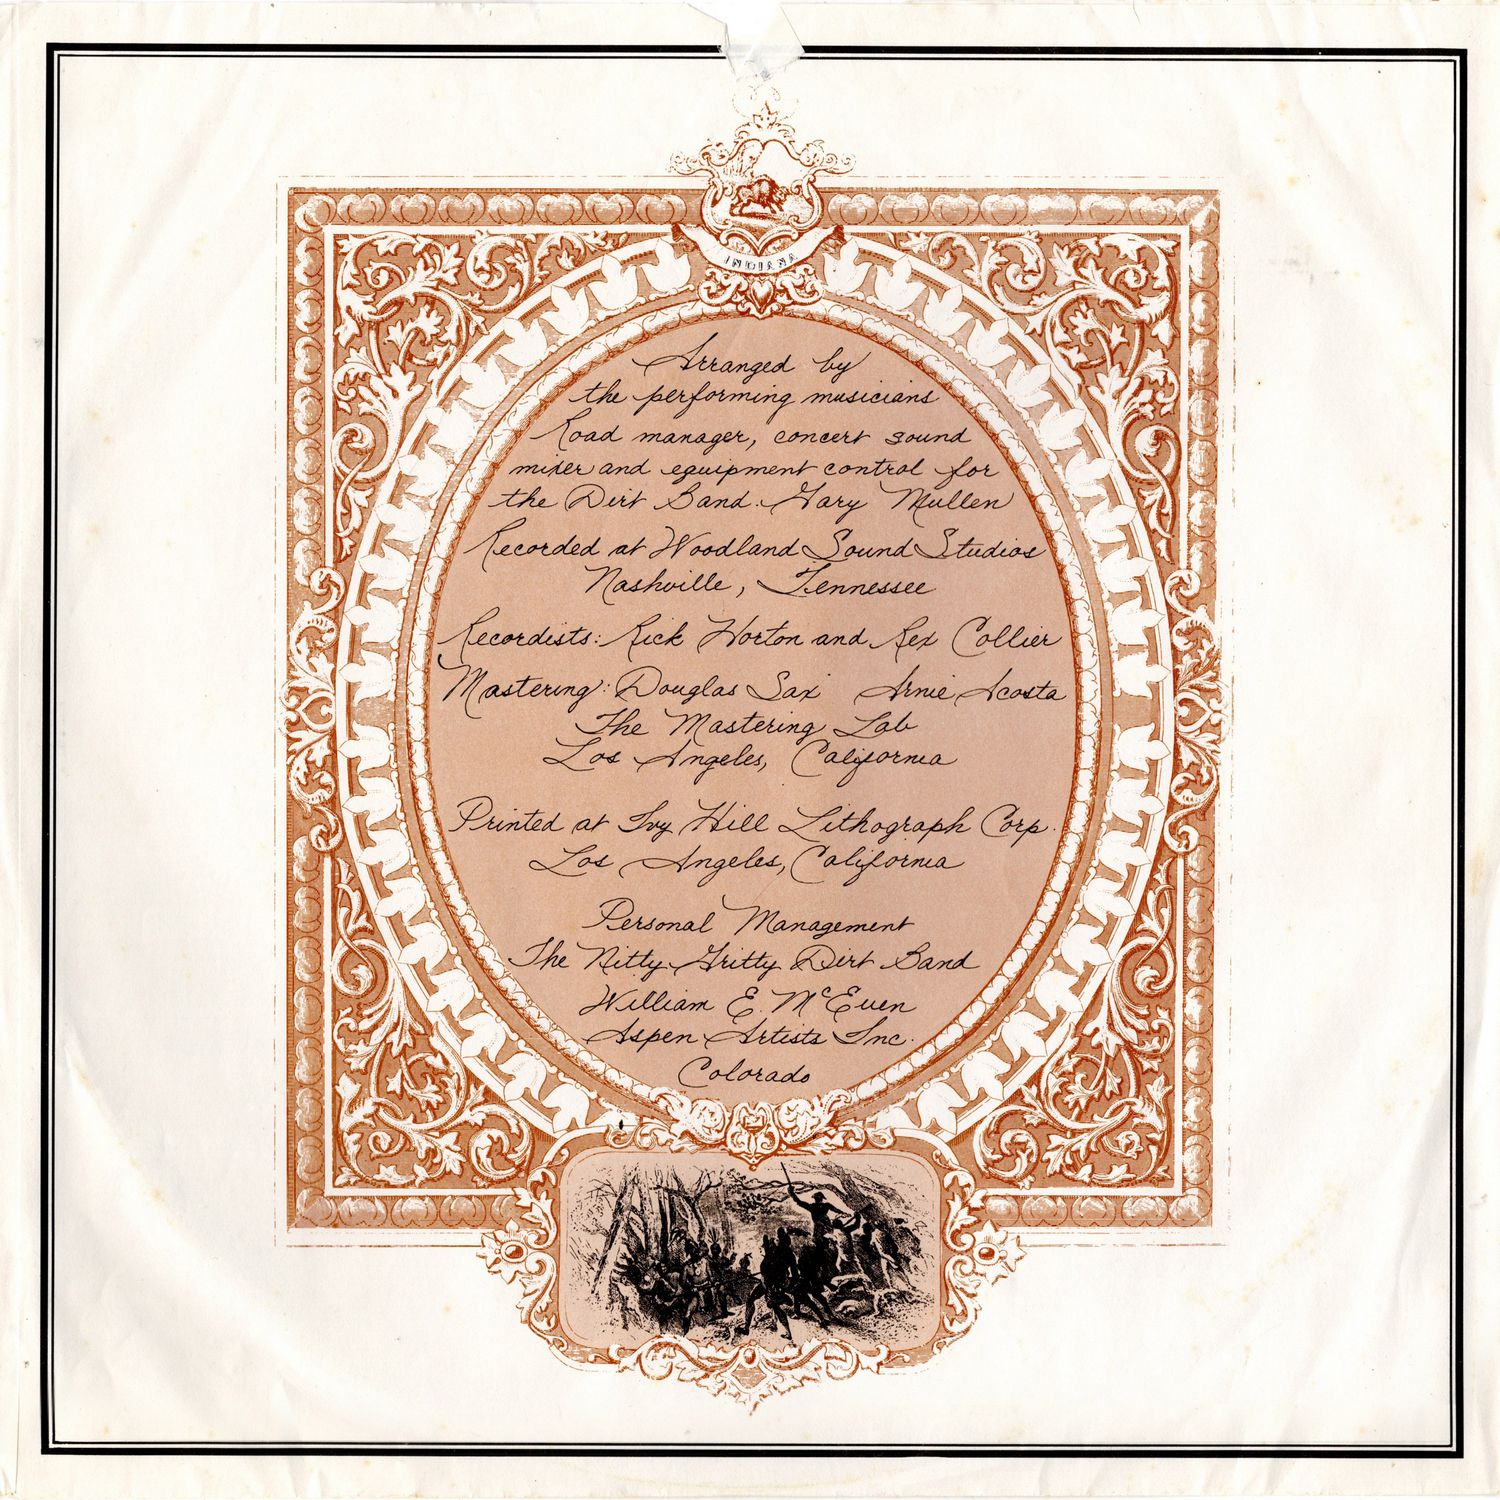 INDIANA
Arranged by
the performing musicians
Road manager, concert sound
mixer and equipment control for
the Dirt Band: Gary Mullen
Recorded at Woodland Sound Studios
Nashville, Tennessee
Recordists: Rick Horton and Rex Collier
Mastering: Douglas Sax Arnie Acosta
The Mastering Lab
Los Angeles, California
Printed at Ivy Hill Lithograph Corp.
Los Angeles, California
Personal Management
The Nitty Gritty Dirt Band
William E. McEuen
Aspen Artists Inc.
Colorado